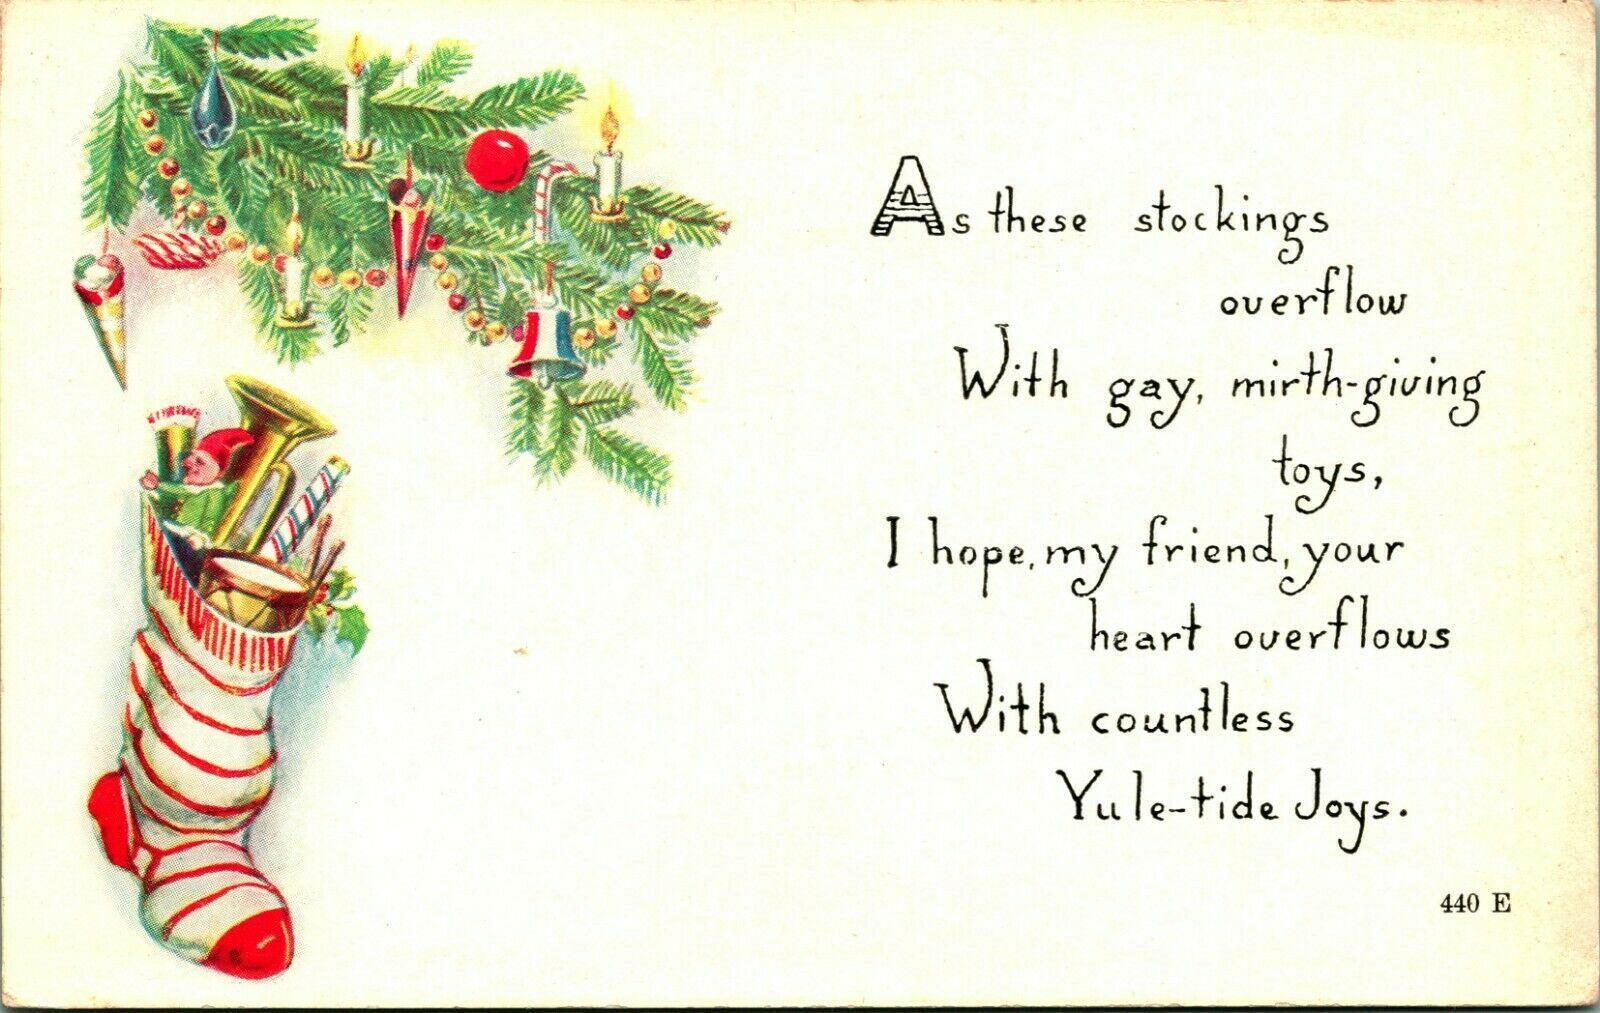 As these stockings
overflow
With gay, mirth-giving
toys,
I hope, my friend, your
heart overflows
With countless
Yule-tide Joys.
440 E